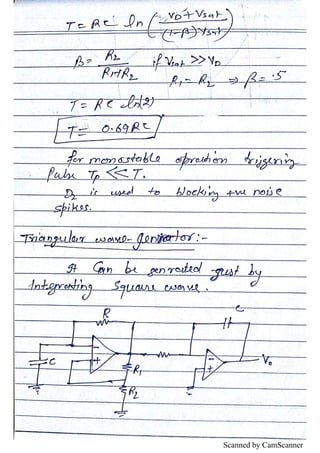 T = RC ln ( VD + Vsat / (1-β) Vsat )
β = R2 / R1+R2 if Vsat >> VD
R1 = R2 ⇒ β = .5
T = RC ln(2)
T = 0.69RC
for monastable opration trigering
Pulse Tp << T.
D2 is used to blocking +ve noise
spikes.
Triangular wave- genrtor:-
It Can be genrated just by
Integrating Square wave.
R
C
C
R1
R2
Vo
Scanned by CamScanner